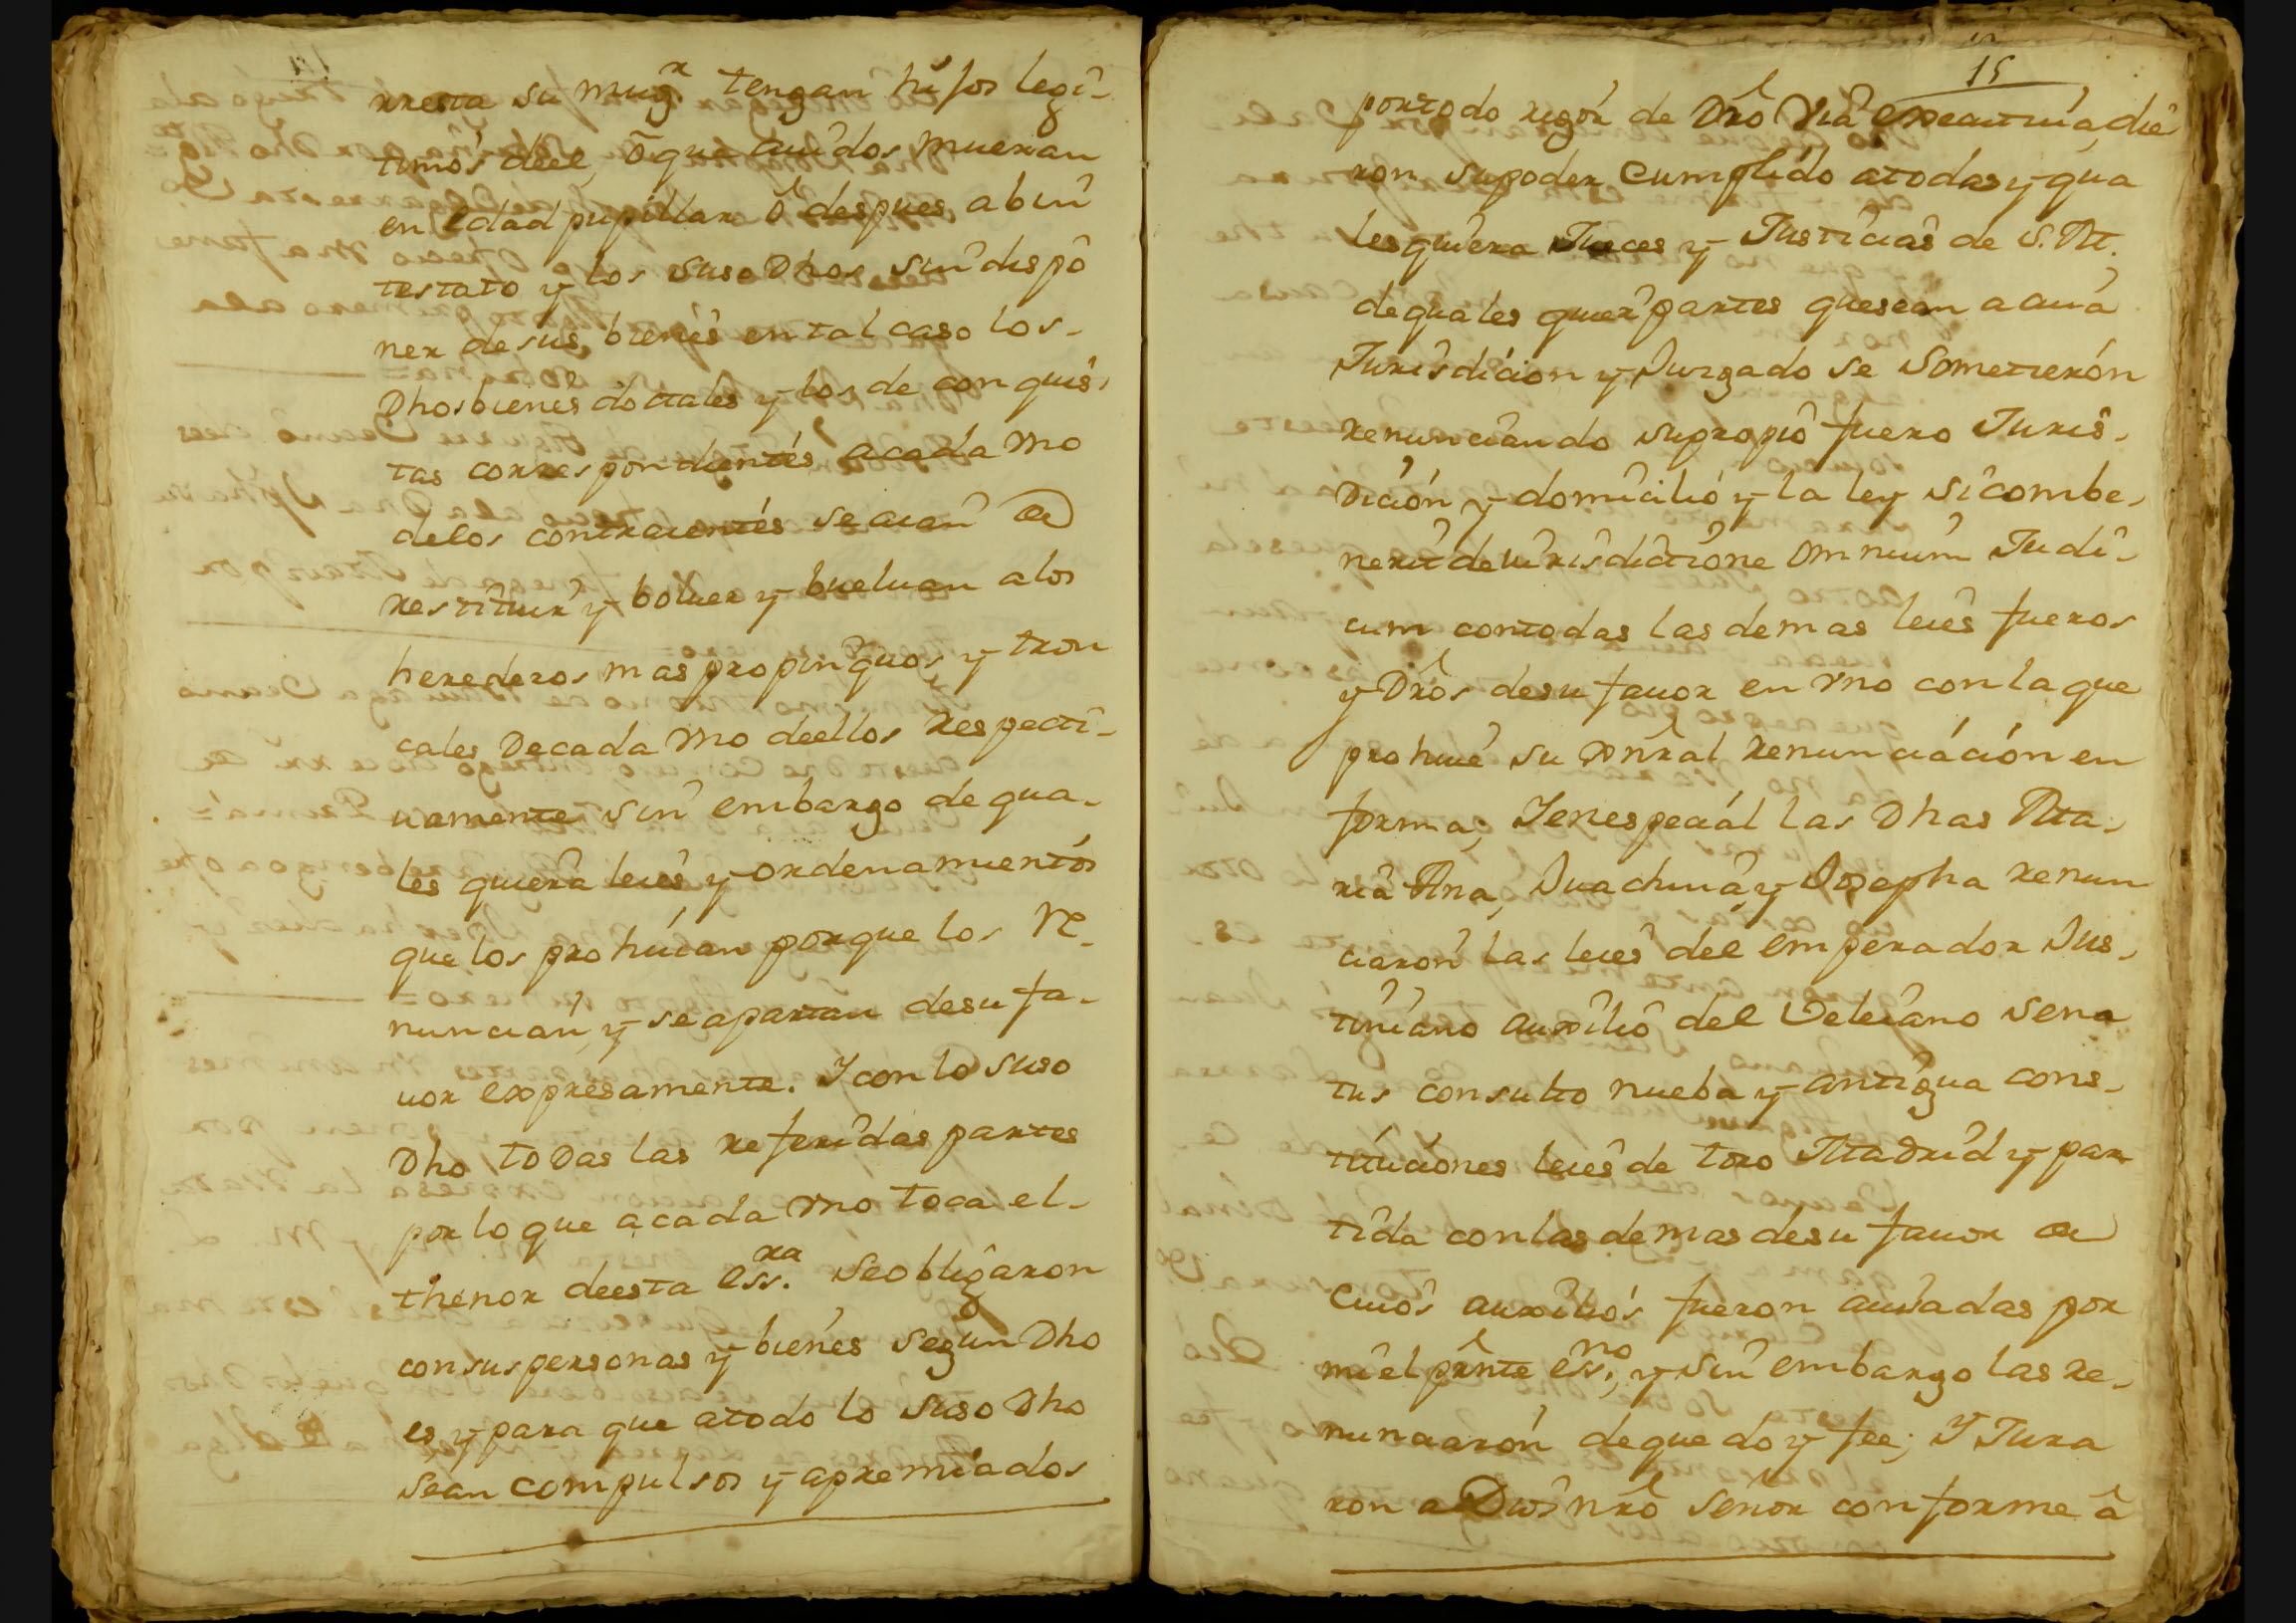 rresta su mugr. tengan hijos legi-
timos deel, ō que auidos mueran
en edad pupillar ô despues abin
testato y los suso Dhos sin dispo
ner de sus bienes en tal caso los-
Dhos bienes dottales y los de conquis-
tas correspondientes acada vno
delos contraientes se aian de
restituir y boluer y bueluan alos
herederos mas propinquos y tron
cales Decada vno deellos Respecti-
uamente sin embargo de qua-
les quiera leies y ordenamientos
que los prohiuan porque los Re-
nuncian y se apartan desu fa-
uor expresamente. Y con lo suso
Dho todas las referidas partes
por lo que acada vno toca el-
thenor deesta essra. se obligaron
con sus personas y bienes segun Dho
es y para que atodo lo suso Dho
sean compulsos y apremiados
15
portodo rigor de Dro Via executiua, die
ron supoder Cumplido atodas y qua
lesquiera Jueces y Justicias de S. M.
de quales quier partes que sean a cuia
Jurisdicion y Juzgado se sometieron
renunciando supropio fuero Juris-
Dicion y domicilio y la ley sicombe-
nerit de iurisdictione omnium Judi-
cum contodas las demas leies fueros
y Dros desu fauor en vno con la que
prohiue su xnral renunciacion en
forma; Y en especial las Dhas Ma-
ria Ana, Juachina, y Josepha renun
ciaron las leies del emperador Jus-
tiniano auxilio del Veleiano sena
tus consulto nueba y antigua cons-
tituciones leies de toro Madrid y par
tida con las demas desu fauor de
Cuios auxilios fueron auisadas por
mi el prnte essno, y sin embargo las re-
nunciaron de que doy fee; Y Jura
ron a Dios nro señor conforme â